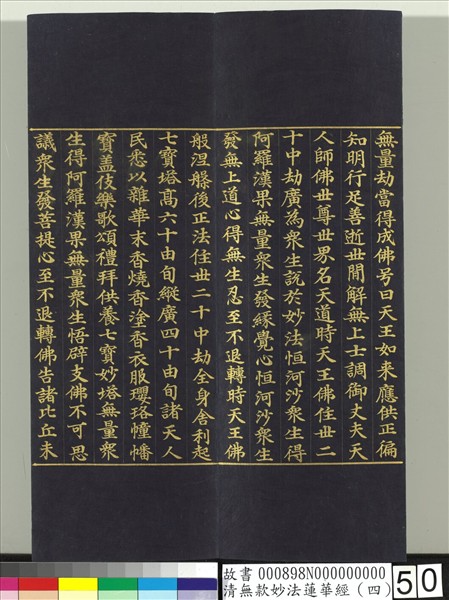 無量劫當得成佛号曰天王如来應供正徧
知明行足善逝世閒解無上士調御丈夫天
人師佛世尊世界名天道時天王佛住世二
十中劫廣為衆生說於妙法恒河沙衆生得
阿羅漢果無量衆生發緣覺心恒河沙衆生
發無上道心得無生忍至不退轉時天王佛
般涅槃後正法住世二十中劫全身舍利起
七寶塔髙六十由旬縱廣四十由旬諸天人
民悉以雜華末香燒香塗香衣服瓔珞幢幡
寶盖伎樂歌頌禮拜供養七寶妙塔無量衆
生得阿羅漢果無量衆生悟辟支佛不可思
議衆生發菩提心至不退轉佛告諸比丘未
故書 000898N000000000
清無款妙法蓮華經(四)
50